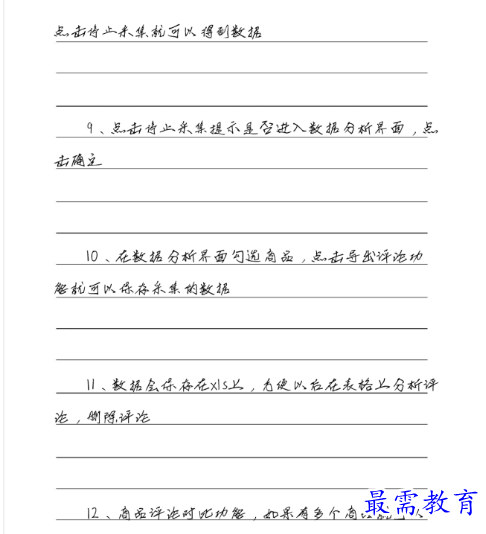 点击停止采集就可以得到数据
9、点击停止采集提示是否进入数据分析界面，点
击确定
10、在数据分析界面勾选商品，点击导出评论功
能就可以保存采集的数据
11、数据会保存在xls上，方便以后在表格上分析评
论，删除评论
12、商品评论对比功能，如果有多个商品
最需教育